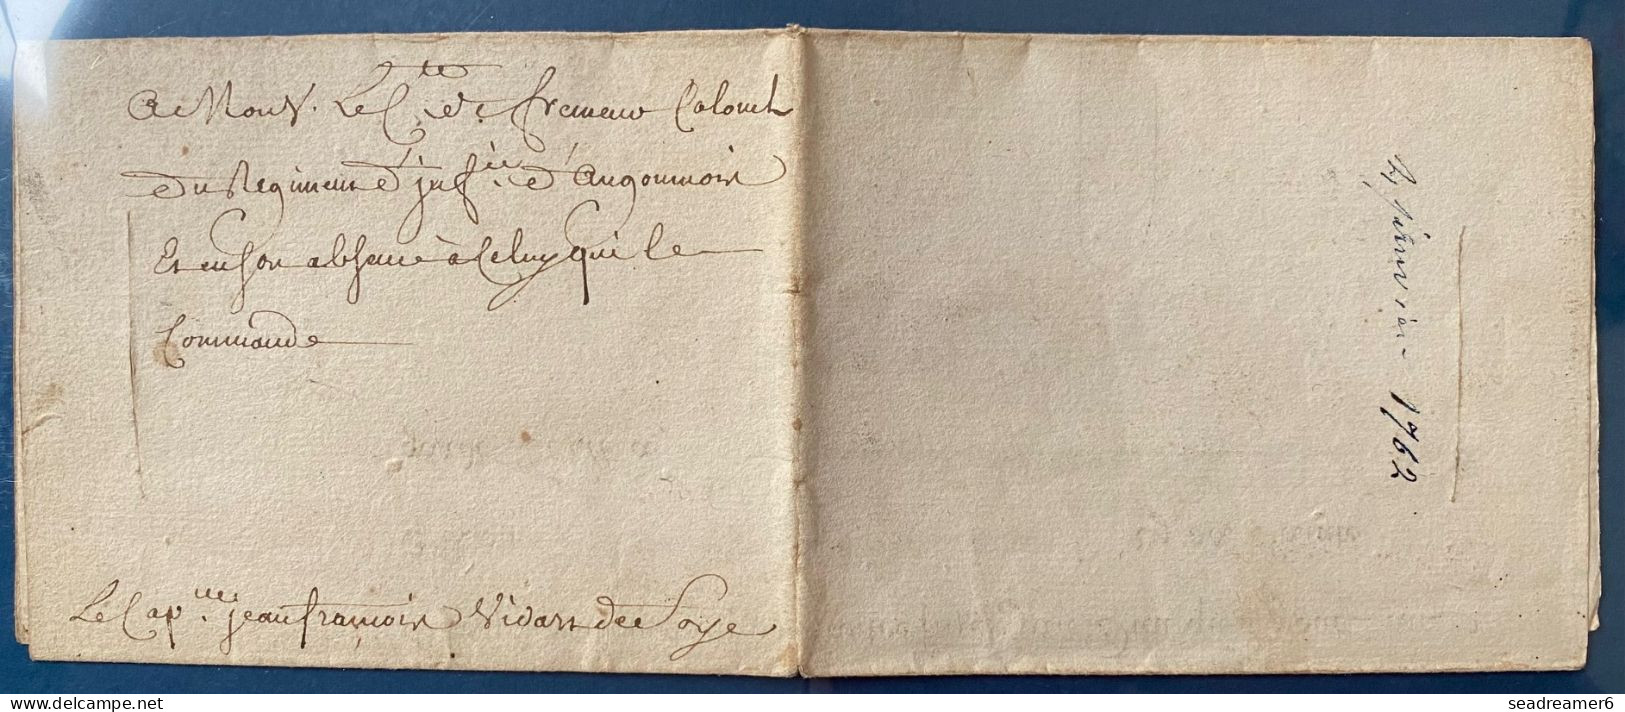 A Mons.r Le C.te de fremeur Colonel
du Regiment d'jnf.rie d'Angoumois
Et en son absance à Celuy qui le
Commande
Le Cap.ne jean françois Vidart de Soye
janvier 1762
seadreamer6